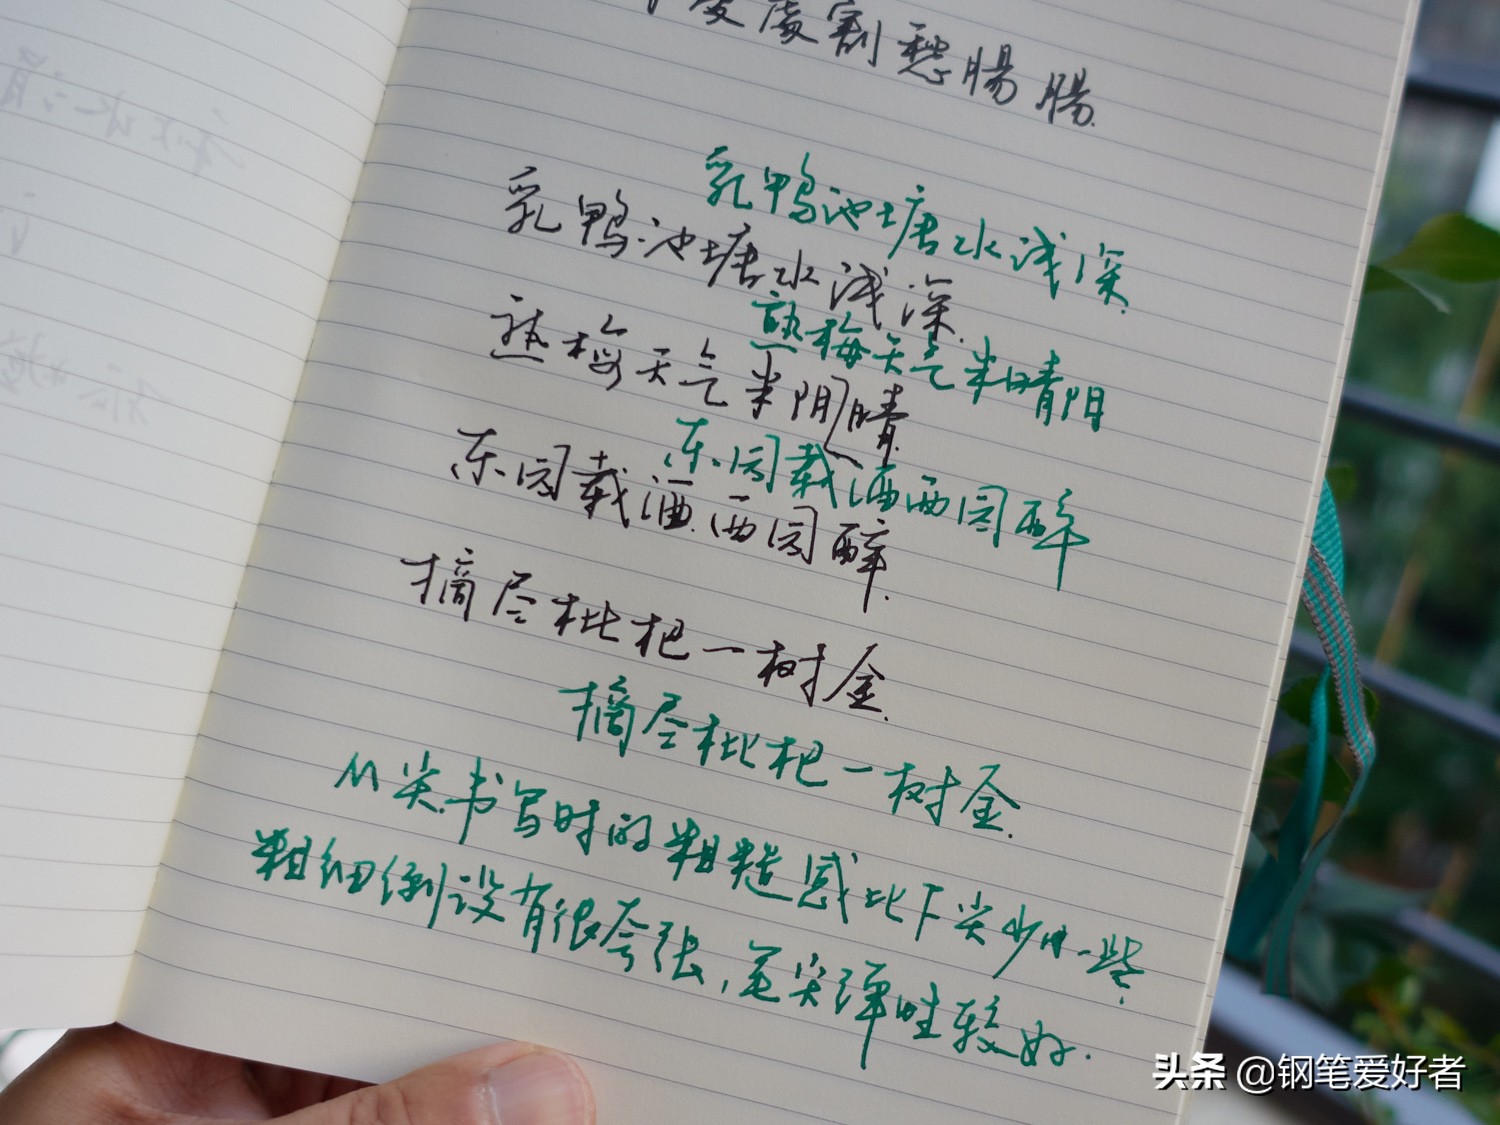 處處割愁腸腸.
乳鸭池塘水浅深.
乳鸭池塘水浅深.
熟梅天气半晴阳
熟梅天气半阴晴.
东园载酒西园醉
东园载酒西园醉.
摘尽枇杷一树金.
摘尽枇杷一树金.
M尖书写时的粗糙感比F尖少一些.
粗细倒没有很夸张,笔尖弹性较好.
头条 @钢笔爱好者